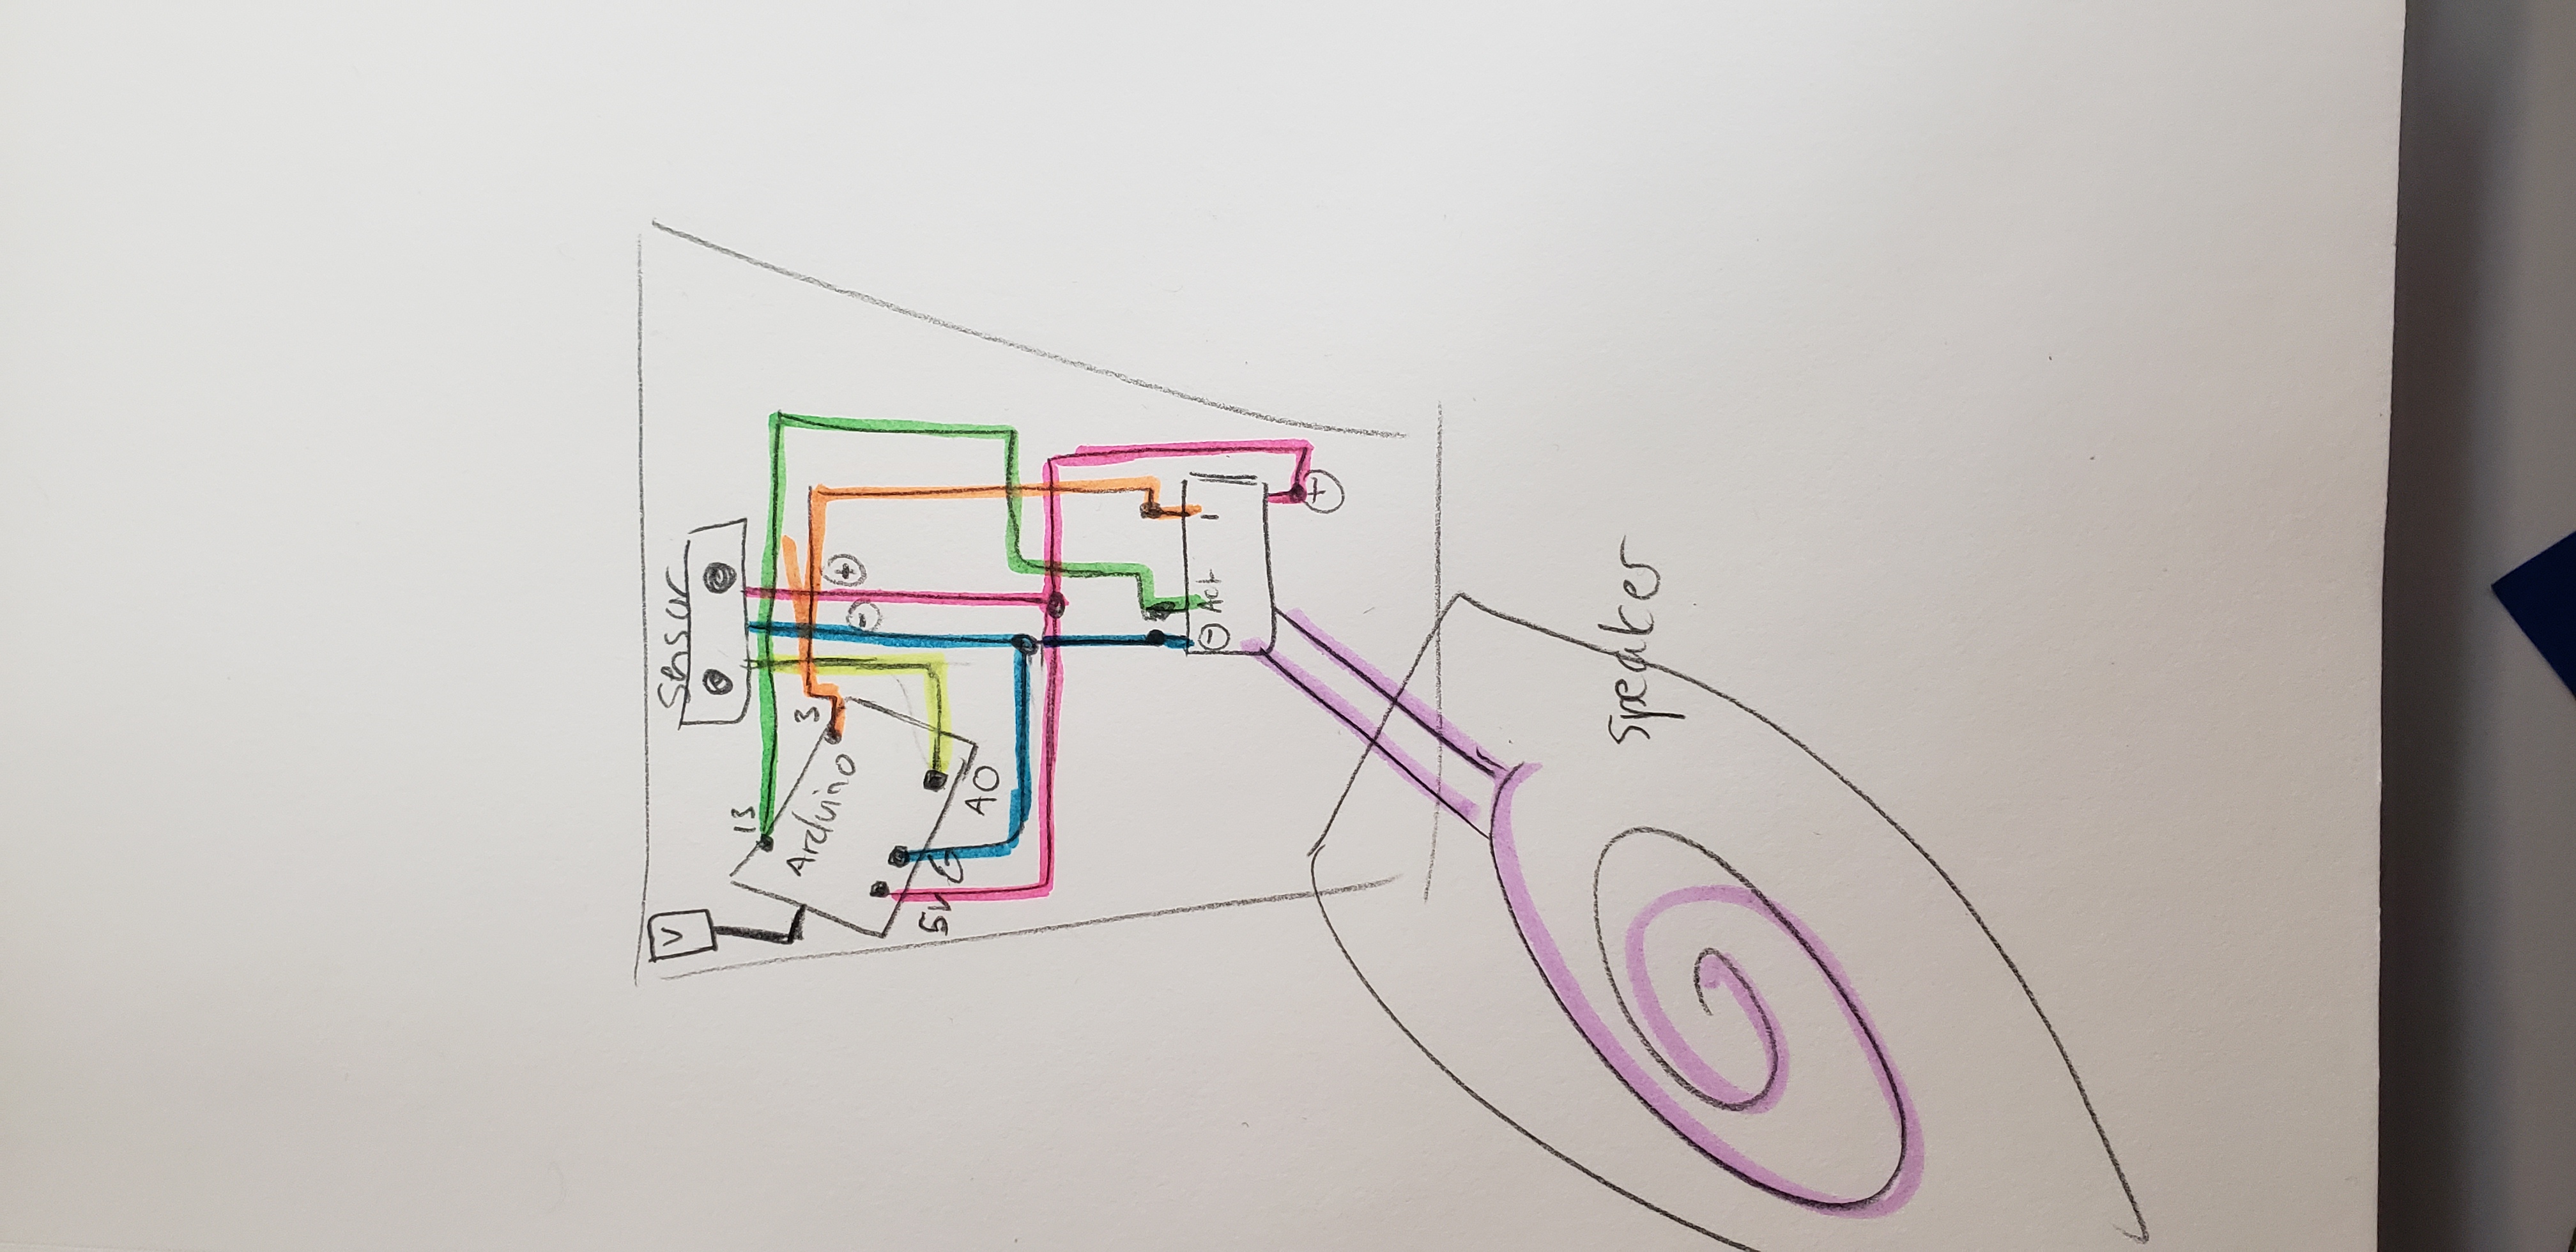 sensor
V
13
Arduino
3
-
+
5v
G
A0
- Act 1
+
speaker